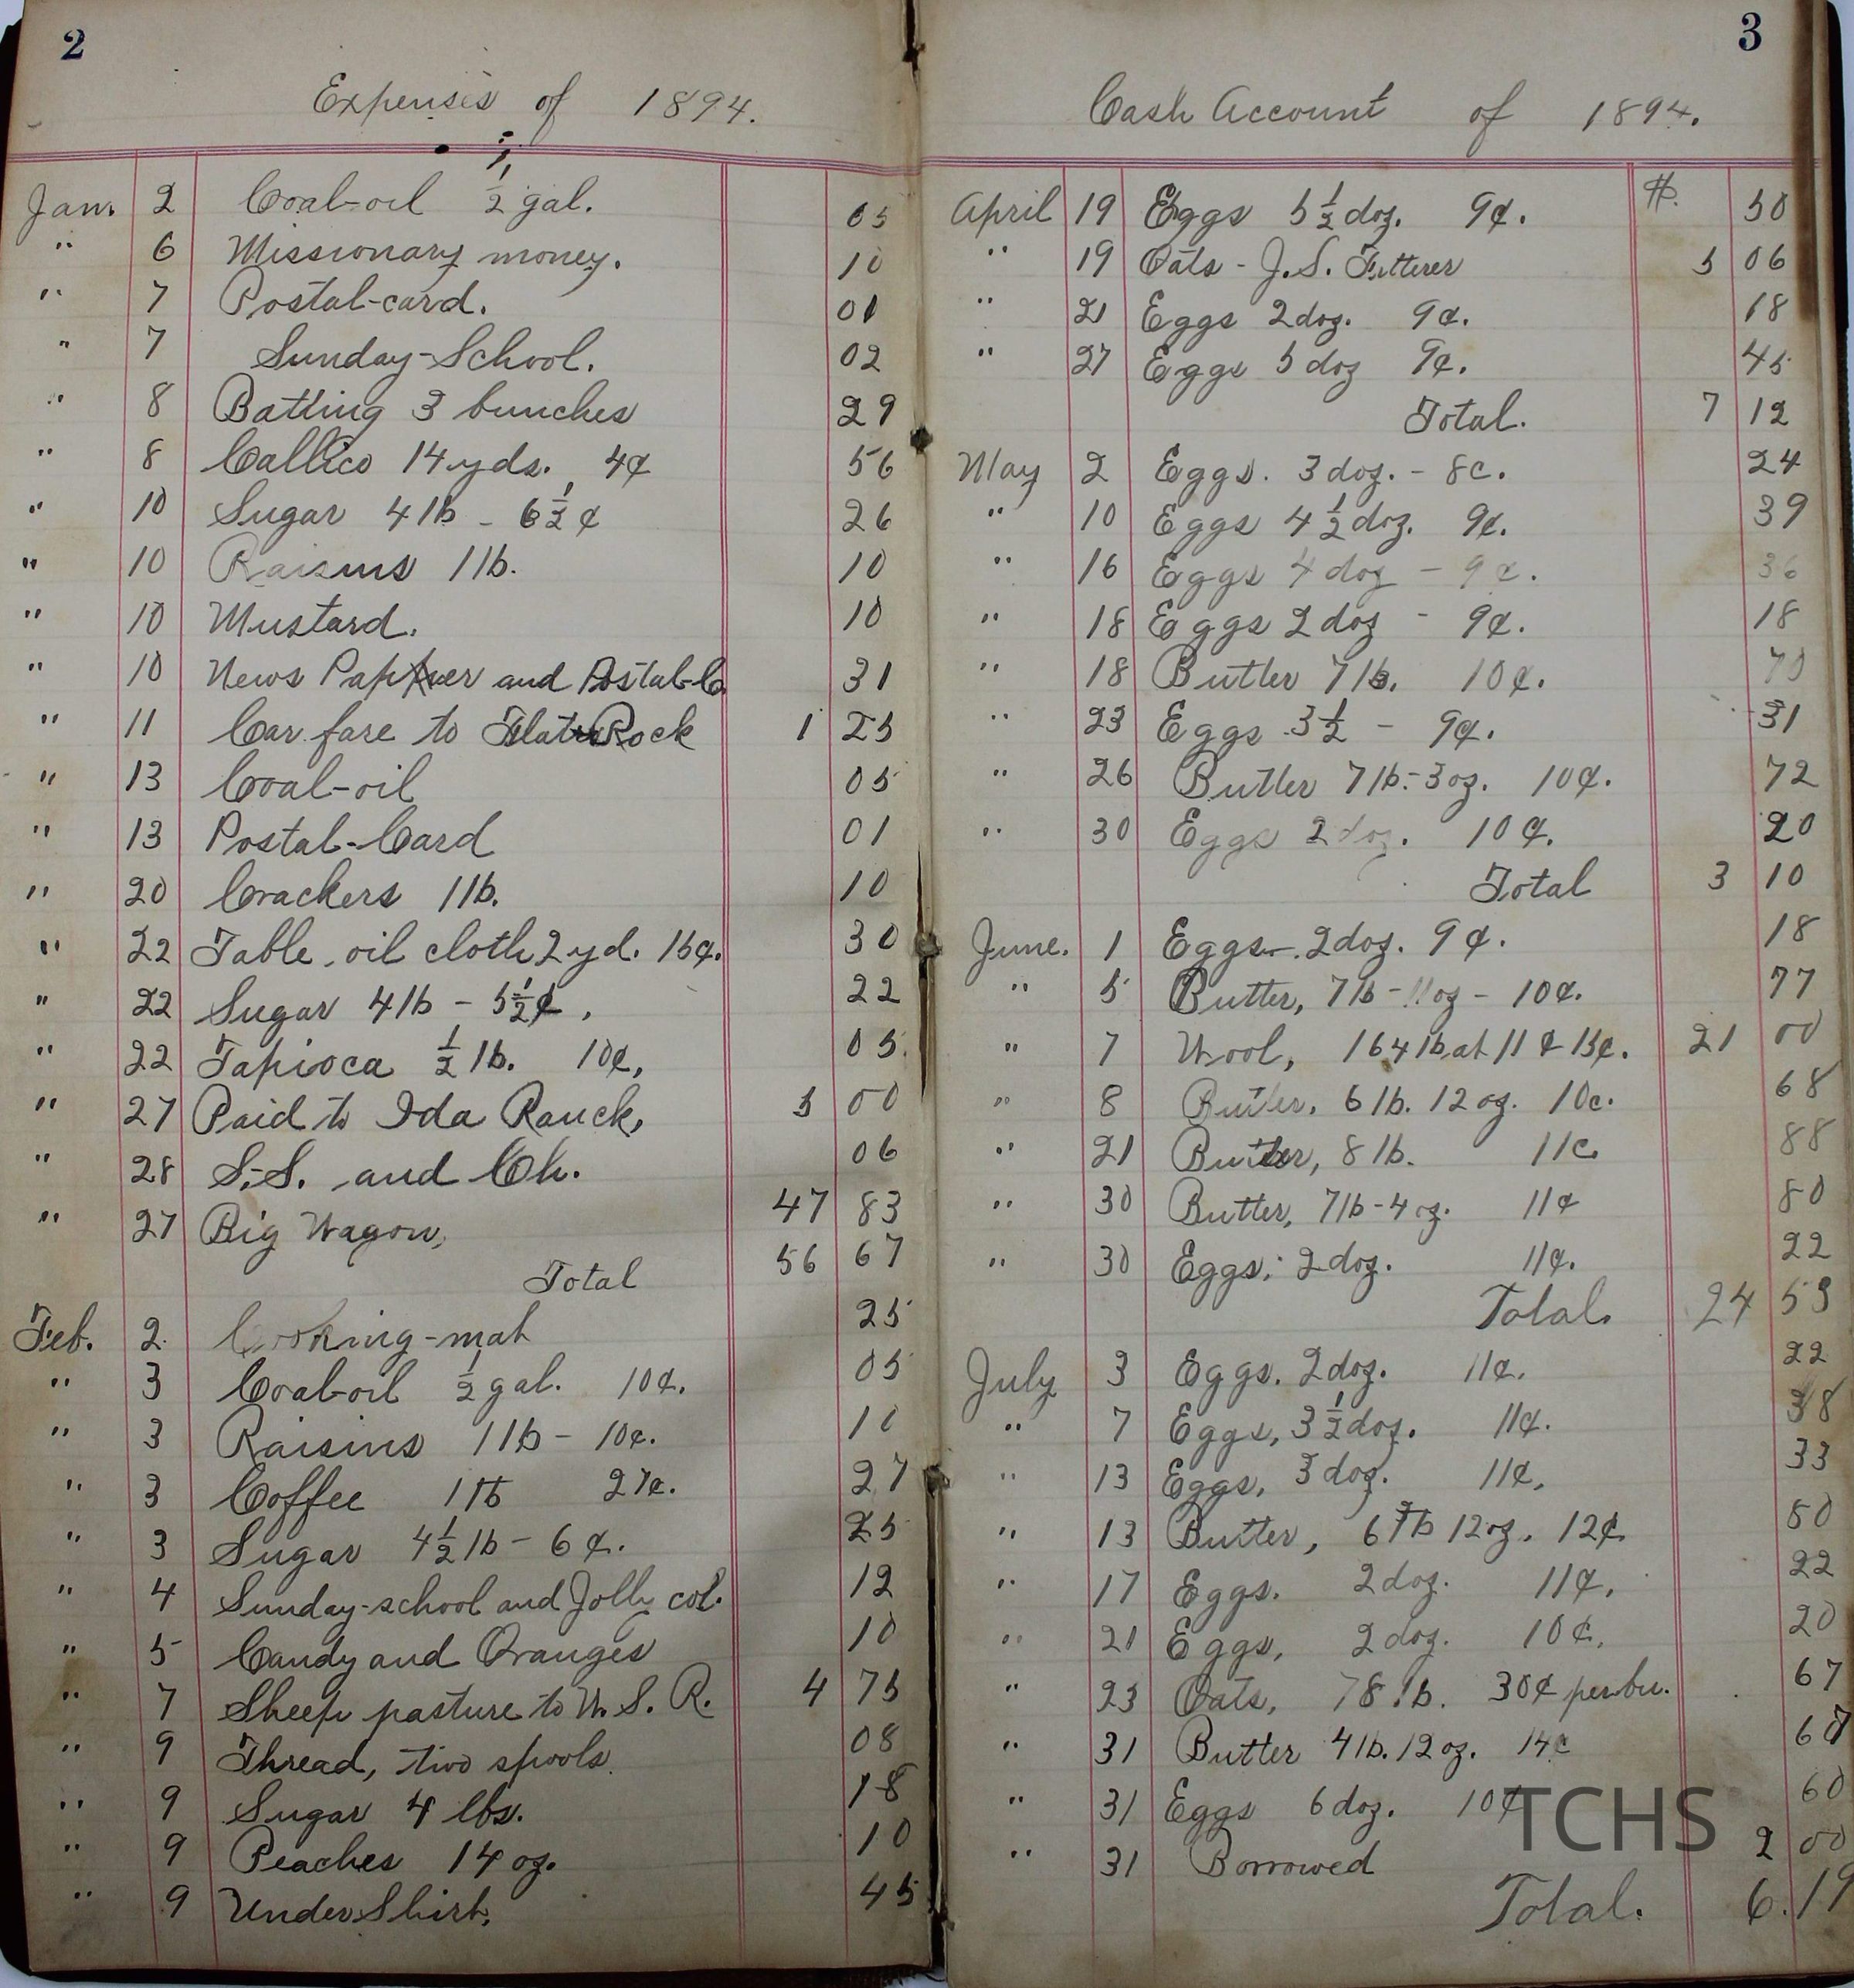 2
Expenses of 1894.
Jan. 2 Coal-oil ½ gal. 05
" 6 Missionary money. 10
" 7 Postal-card. 01
" 7 Sunday-School. 02
" 8 Batting 3 bunches 29
" 8 Callico 14 yds. 4¢ 56
" 10 Sugar 4 lb - 6½ ¢ 26
" 10 Raisins 1 lb. 10
" 10 Mustard. 10
" 10 News Papper and Postal-C 31
" 11 Car fare to Flat Rock 1 25
" 13 Coal-oil 05
" 13 Postal-Card 01
" 20 Crackers 1 lb. 10
" 22 Table oil cloth 2 yd. 15¢. 30
" 22 Sugar 4 lb - 5½¢, 22
" 22 Tapioca ½ lb. 10¢, 05.
" 27 Paid to Ida Rauck, 5 00
" 28 S.S. and Ch. 06
" 27 Big Wagon, 47 83
Total 56 67
Feb. 2. 25
" 3 Coal-oil ½ gal. 10¢. 05
" 3 Raisins 1 lb - 10¢. 10
" 3 Coffee 1 lb 27¢. 27
" 3 Sugar 4½ lb - 6 ¢. 25
" 4 Sunday-school and Jolly col. 12
" 5 Candy and Oranges 10
" 7 Sheep pasture to W. S. R. 4 75
" 9 Thread, two spools. 08
" 9 Sugar 4 lbs. 18
" 9 Peaches 14 oz. 10
" 9 Under Shirt, 45
3
Cash Account of 1894.
April 19 Eggs 5½ doz. 9¢. $. 50
" 19 Oats - J.S. Fetterer 5 06
" 21 Eggs 2 doz. 9¢. 18
" 27 Eggs 5 doz 9¢. 45
Total. 7 12
May 2 Eggs. 3 doz. - 8c. 24
" 10 Eggs 4½ doz. 9¢. 39
" 16 Eggs 4 doz - 9¢. 36
" 18 Eggs 2 doz - 9¢. 18
" 18 Butter 7 lb. 10¢. 70
" 23 Eggs 3½ - 9¢. 31
" 26 Butter 7 lb.-3 oz. 10¢. 72
" 30 Eggs 2 doz. 10¢. 20
Total 3 10
June. 1 Eggs-. 2 doz. 9¢. 18
" 5 Butter, 7 lb - 11 oz - 10¢. 77
" 7 Wool, 164 lb at 11 & 13¢. 21 00
" 8 Butter, 6 lb. 12 oz. 10c. 68
" 21 Butter, 8 lb. 11c. 88
" 30 Butter, 7 lb - 4 oz. 11¢ 80
" 30 Eggs; 2 doz. 11¢. 22
Total. 24 53
July 3 Eggs. 2 doz. 11¢. 22
" 7 Eggs, 3½ doz. 11¢. 38
" 13 Eggs, 3 doz. 11¢, 33
" 13 Butter, 6 lb 12 oz. 12¢ 80
" 17 Eggs. 2 doz. 11¢, 22
" 21 Eggs, 2 doz. 10¢, 20
" 23 Oats, 78 lb. 30¢ per bu. 67
" 31 Butter 4 lb. 12 oz. 14c 67
" 31 Eggs 6 doz. 10¢ 60
" 31 Borrowed 2 00
Total. 6.19
TCHS